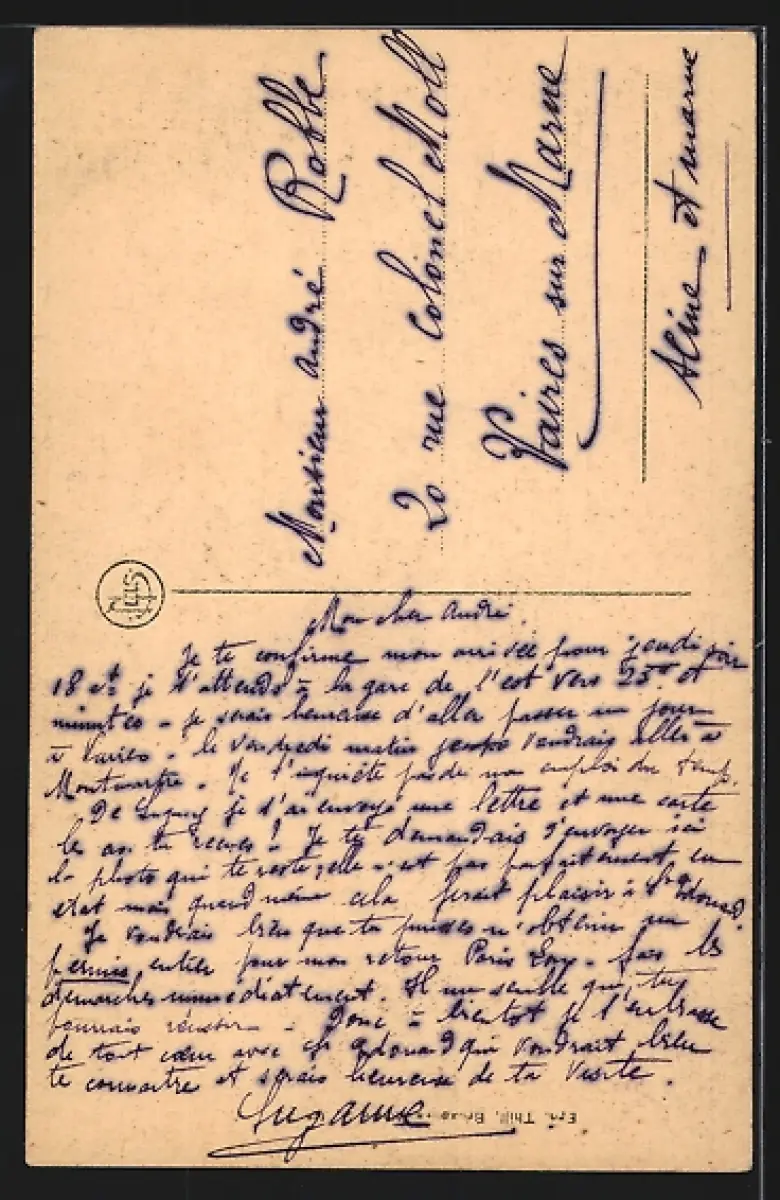 Monsieur André Robbe
20 rue Colonel Moll
Vaires sur Marne
Seine et Marne
Mon cher André.
Je te confirme mon arrivée pour jeudi soir
18 ct je t'attends à la gare de l'est vers 23h et
minutes - je serais heureuse d'aller passer un jour
à Vaires. le vendredi matin voudrais aller à
Montmartre. Ne t'inquiète pas de mon emploi du temps.
De je t'ai envoyé une lettre et une carte
les as tu reçues! Je te demandais d'envoyer ici
la photo qui te reste, elle n'est pas parfaitement en
état mais quand même cela ferait plaisir à Edouard.
Je voudrais bien que tu puisses m'obtenir un
permis entier pour mon retour Paris. fais les
démarches immédiatement. Il me semble que tu
pourrais réussir. Donc à bientôt je t'embrasse
de tout cœur avec Edouard qui voudrait bien
te connaître et serais heureuse de ta visite.
Suzanne
Ern. Thill, Bruxelles